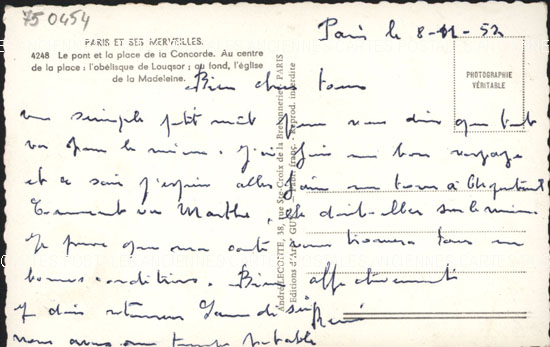 750454
Paris le 8-11-52
PARIS ET SES MERVEILLES.
4248 Le pont et la place de la Concorde. Au centre
de la place : l'obélisque de Louqsor ; au fond, l'église
de la Madeleine.
PHOTOGRAPHIE
VÉRITABLE
Bien chers tous
un simple petit mot pour vous dire que tout
va pour le mieux. J'ai fait un bon voyage
et ce soir j'espère aller faire un tour à
Comment va Marthe, elle doit aller
Je pense que ma carte vous trouvera tous en
bonnes conditions. Bien affectueusement
René
Je dois retourner samedi soir
nous avons un temps
André LECONTE, 38, rue Ste-Croix de la Bretonnerie, PARIS
Editions d'Art GUY Reprod. interdite